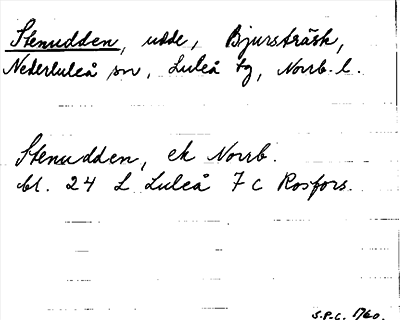 Stenudden, udde, Bjursträsk,
Nederluleå sn, Luleå tg, Norrb. l.
Stenudden, ek Norrb.
bl. 24 L Luleå 7 C Rosfors.
S.P.C. 1960.